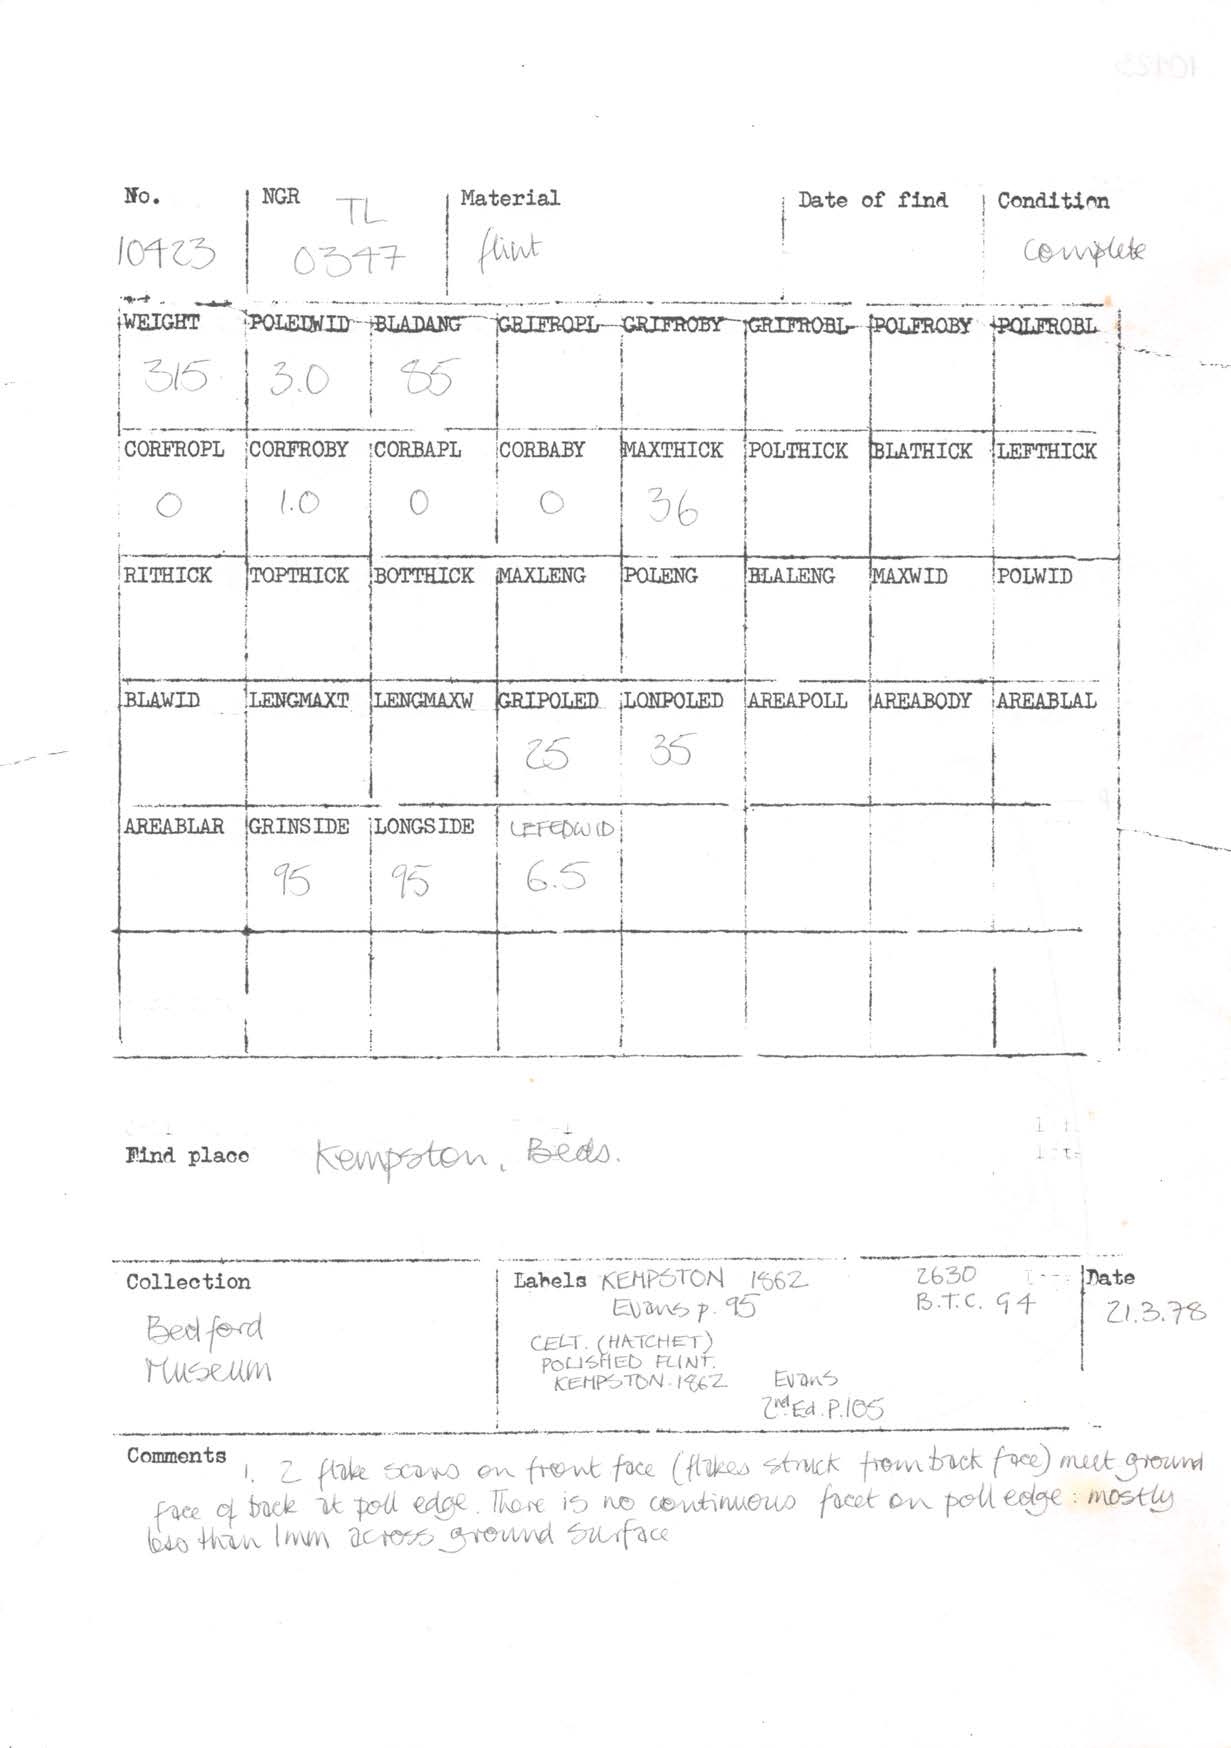 No. NGR TL Material Date of find Condition
10423 0347 flint complete
WEIGHT POLEDWID BLADANG GRIFROPL GRIFROBY GRIFROBL POLFROBY POLFROBL
315 3.0 85
CORFROPL CORFROBY CORBAPL CORBABY MAXTHICK POLTHICK BLATHICK LEFTHICK
0 1.0 0 0 36
RITHICK TOPTHICK BOTTHICK MAXLENG POLENG BLALENG MAXWID POLWID
BLAWID LENGMAXT LENGMAXW GRIPOLED LONPOLED AREAPOLL AREABODY AREABLAL
25 35
AREABLAR GRINSIDE LONGSIDE LEFEDWID
95 95 6.5
Find place Kempston, Beds.
Collection
Bedford
Museum
Labels KEMPSTON 1862 2630
Evans p. 95 B.T.C. 94
CELT. (HATCHET)
POLISHED FLINT.
KEMPSTON. 1862 Evans
2nd Ed. P.105
Date
21.3.78
Comments 1. 2 flake scars on front face (flakes struck from back face) meet ground
face of back at poll edge. There is no continuous facet on poll edge : mostly
less than 1mm across ground surface